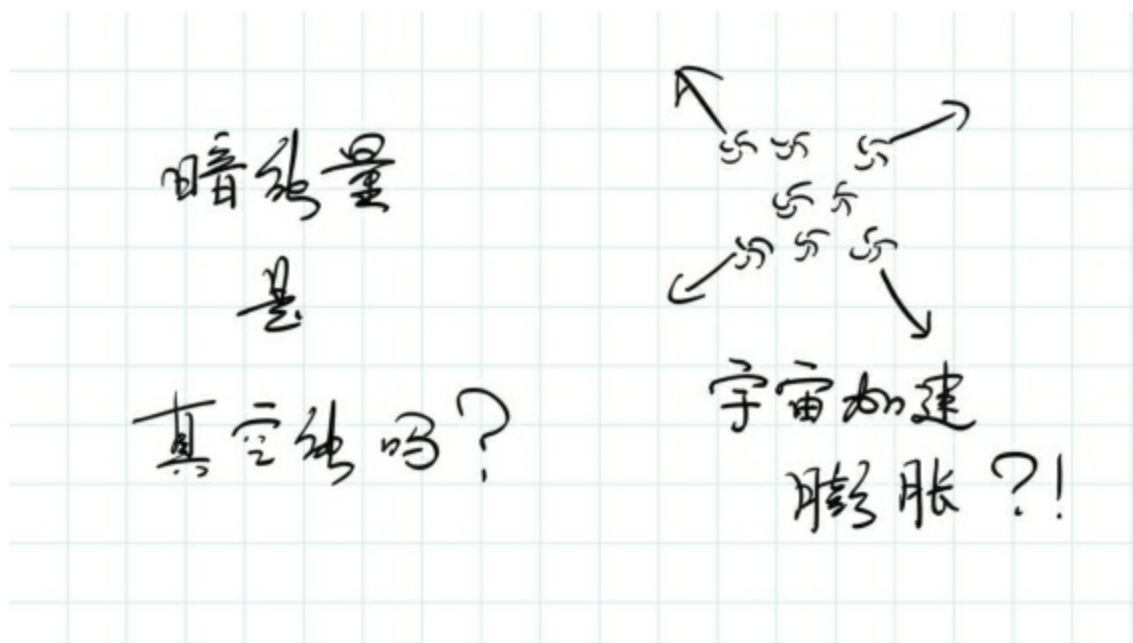 暗能量
是
真空能吗?
宇宙加速
膨胀?!